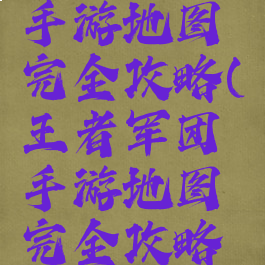 手游地图
完全攻略(
王者军团
手游地图
完全攻略